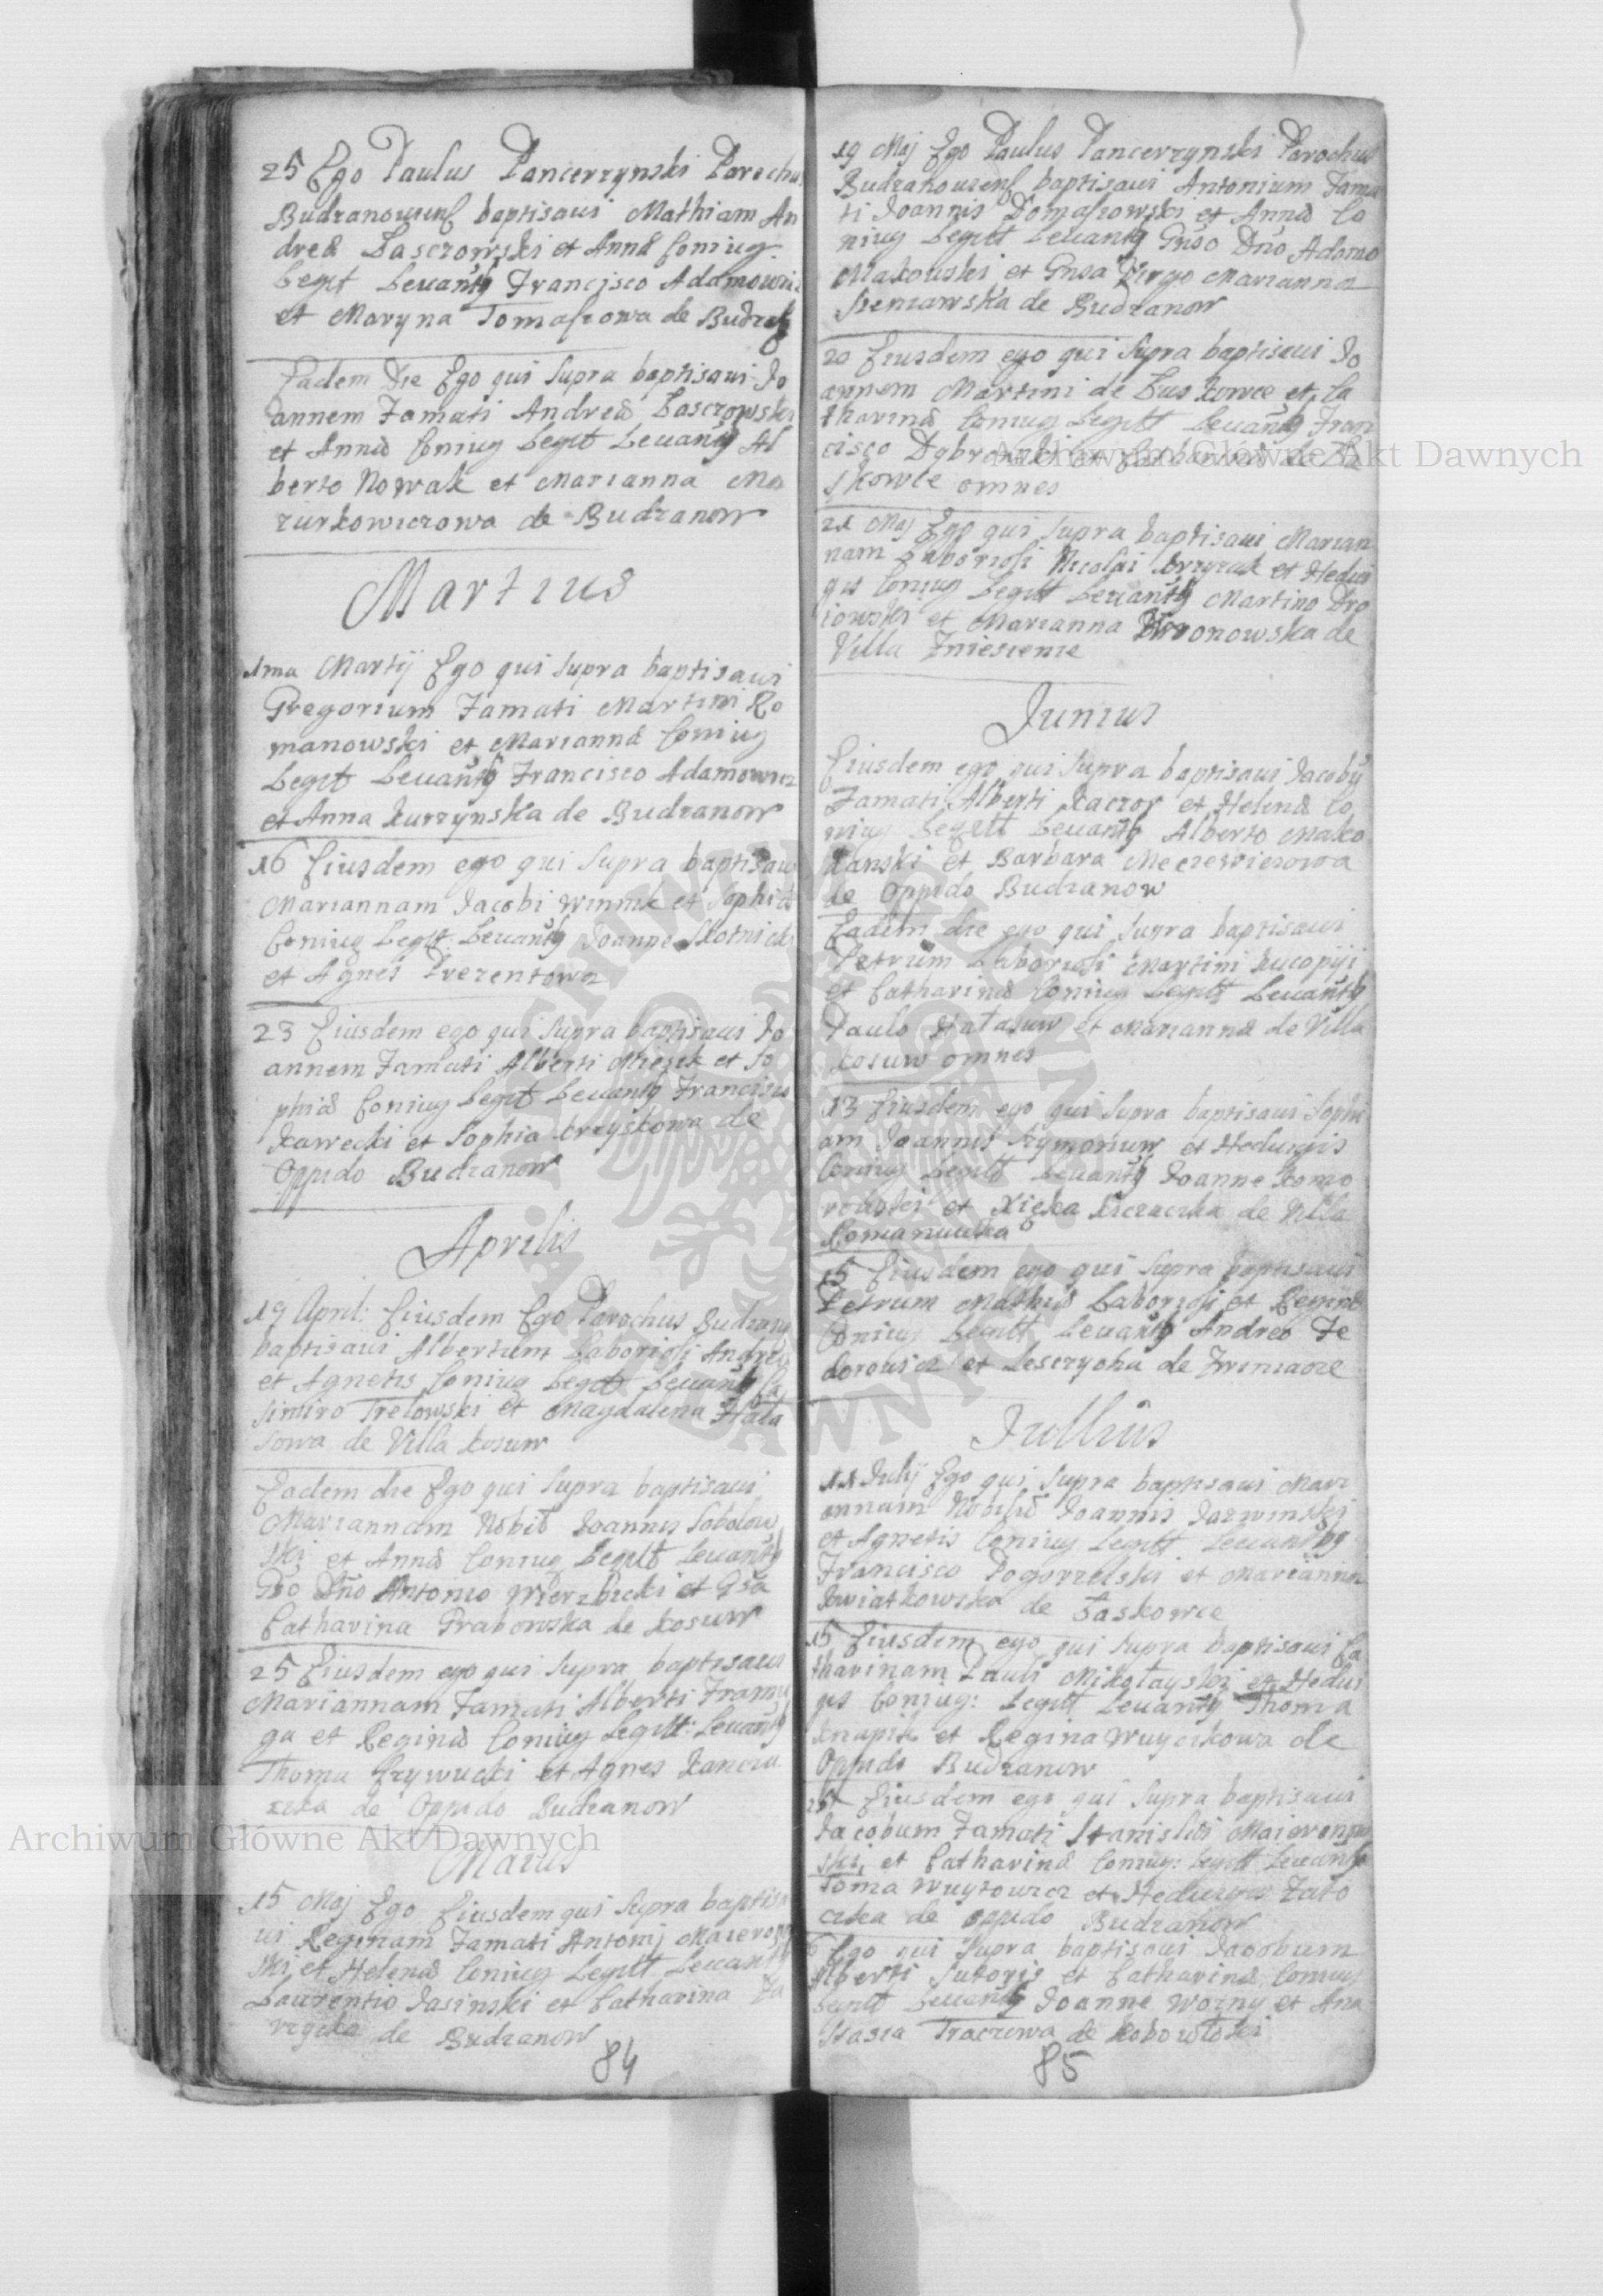 25 Ego Paulus Pancerzynski Parochus
Budzanouiens baptisaui Mathiam An
dreæ Łasczowski et Annæ Coniug.
Legit Leuantib Francisco Adamowicz
et Maryna Tomaszowa de Budza
Eadem Die Ego qui supra baptisaui Jo
annem Famati Andreæ Łasczowski
et Annæ Coniug Legit Leuantib Al
berto Nowak et Marianna Ma
zurkowiczowa de Budzanow
Martius
1ma Martij Ego qui supra baptisaui
Gregorium Famati Martini Ro
manowski et Mariannæ Coniug
Legit Leuantib Francisco Adamowicz
et Anna Kurzynska de Budzanow
16 Eiusdem ego qui supra baptisaui
Mariannam Jacobi Winnik et Sophiæ
Coniug Legit: Leuantib Joanne Słotnicki
et Agnes Prezentowa
23 Eiusdem ego qui supra baptisaui Jo
annem Famati Alberti et So
phiæ Coniug Legit Leuantib Francisco
Kawecki et Sophia Krzyskowa de
Oppido Budzanow
Aprilis
19 April: Eiusdem Ego Parochus Budzano
baptisaui Albertum Laboriosi Andreæ
et Agnetis Coniug Legit Leuantib Ca
simiro Trelowski et Magdalena Hała
sowa de Villa Kosuw
Eadem die Ego qui supra baptisaui
Mariannam Nobil Joannis Sobolew
ski et Annæ Coniug Legitt Leuantib
Gso Dno Antonio Wierzbicki et Gsa
Catharina Grabowska de Kosuw
25 Eiusdem ego qui supra baptisaui
Mariannam Famati Alberti
ga et Reginæ Coniug Legitt: Leuantib
Thoma Krzywucki et Agnes Kancza
rzka de Oppido Budzanow
Maius
15 Maj Ego Eiusdem qui supra baptisa
ui Reginam Famati Antonij Maierow
ski et Helenæ Coniug Legitt Leuantib
Laurentio Jasinski et Catharina Za
de Budzanow
84
19 Maj Ego Paulus Pancerzynski Parochus
Budzanouiens baptisaui Antonium Fama
ti Joannis Domaszowski et Annæ Co
niug Legitt Leuantib Gnso Dno Adamo
Makouski et Gnsa Virgo Marianna
Sieniawska de Budzanow
20 Eiusdem ego qui supra baptisaui Jo
annem Martini de Łaskowce et Ca
tharinæ Coniug Legitt Leuantib Fran
cisco et Barbara de Ła
skowce omnes
21 Maj Ego qui supra baptisaui Marian
nam Laboriosi Nicolai Krzyzak et Hedui
gis Coniug Legitt Leuantib Martino Dro
zowski et Marianna Woronowska de
Villa Zniesienie
Junius
Eiusdem ego qui supra baptisaui Jacobu
Famati Alberti Kaczor et Helenæ Co
niug Legitt Leuantib Alberto Malco
et Barbara
de Oppido Budzanow
Eadem die ego qui supra baptisaui
Petrum Laboriosi Martini
et Catharinæ Coniug Legitt Leuantib
Paulo Hałasuw et Marianna de Villa
Kosuw omnes
13 Eiusdem ego qui supra baptisaui Sophi
am Joannis Szymonuw et Heduigis
Coniug Legitt Leuantib Joanne Komo
rouski et de Villa
Romanuwka
15 Eiusdem ego qui supra baptisaui
Petrum Mathiæ Laboriosi et Reginæ
Coniug Legitt Leuantib Andrea Fe
dorouicz et Lesczycha de
Jullius
11 Julij Ego qui supra baptisaui Mari
annam Nobilis Joannis Jazwinski
et Agnetis Coniug Legitt Leuantibg
Francisco Pogorzelski et Marianna
Kwiatkowska de Łaskowce
15 Eiusdem ego qui supra baptisaui Ca
tharinam Pauli Mikołayski et Hedui
gis Coniug: Legitt Leuantib Thoma
Knapik et Regina Wuycikowa de
Oppido Budzanow
Eiusdem ego qui supra baptisaui
Jacobum Famati Stanislai Maieronow
ski, et Catharinæ Coniug: Legitt Leuantib
Toma Wuytowicz et Heduigis Zało
de Oppido Budzanow
Ego qui supra baptisaui Jacobum
Alberti Sutoris et Catharinæ Coniug
Legitt Leuantib Joanne Wozny et Ana
stasia Traczowa de Kobowłoki
85
Archiwum Główne Akt Dawnych
Archiwum Główne Akt Dawnych